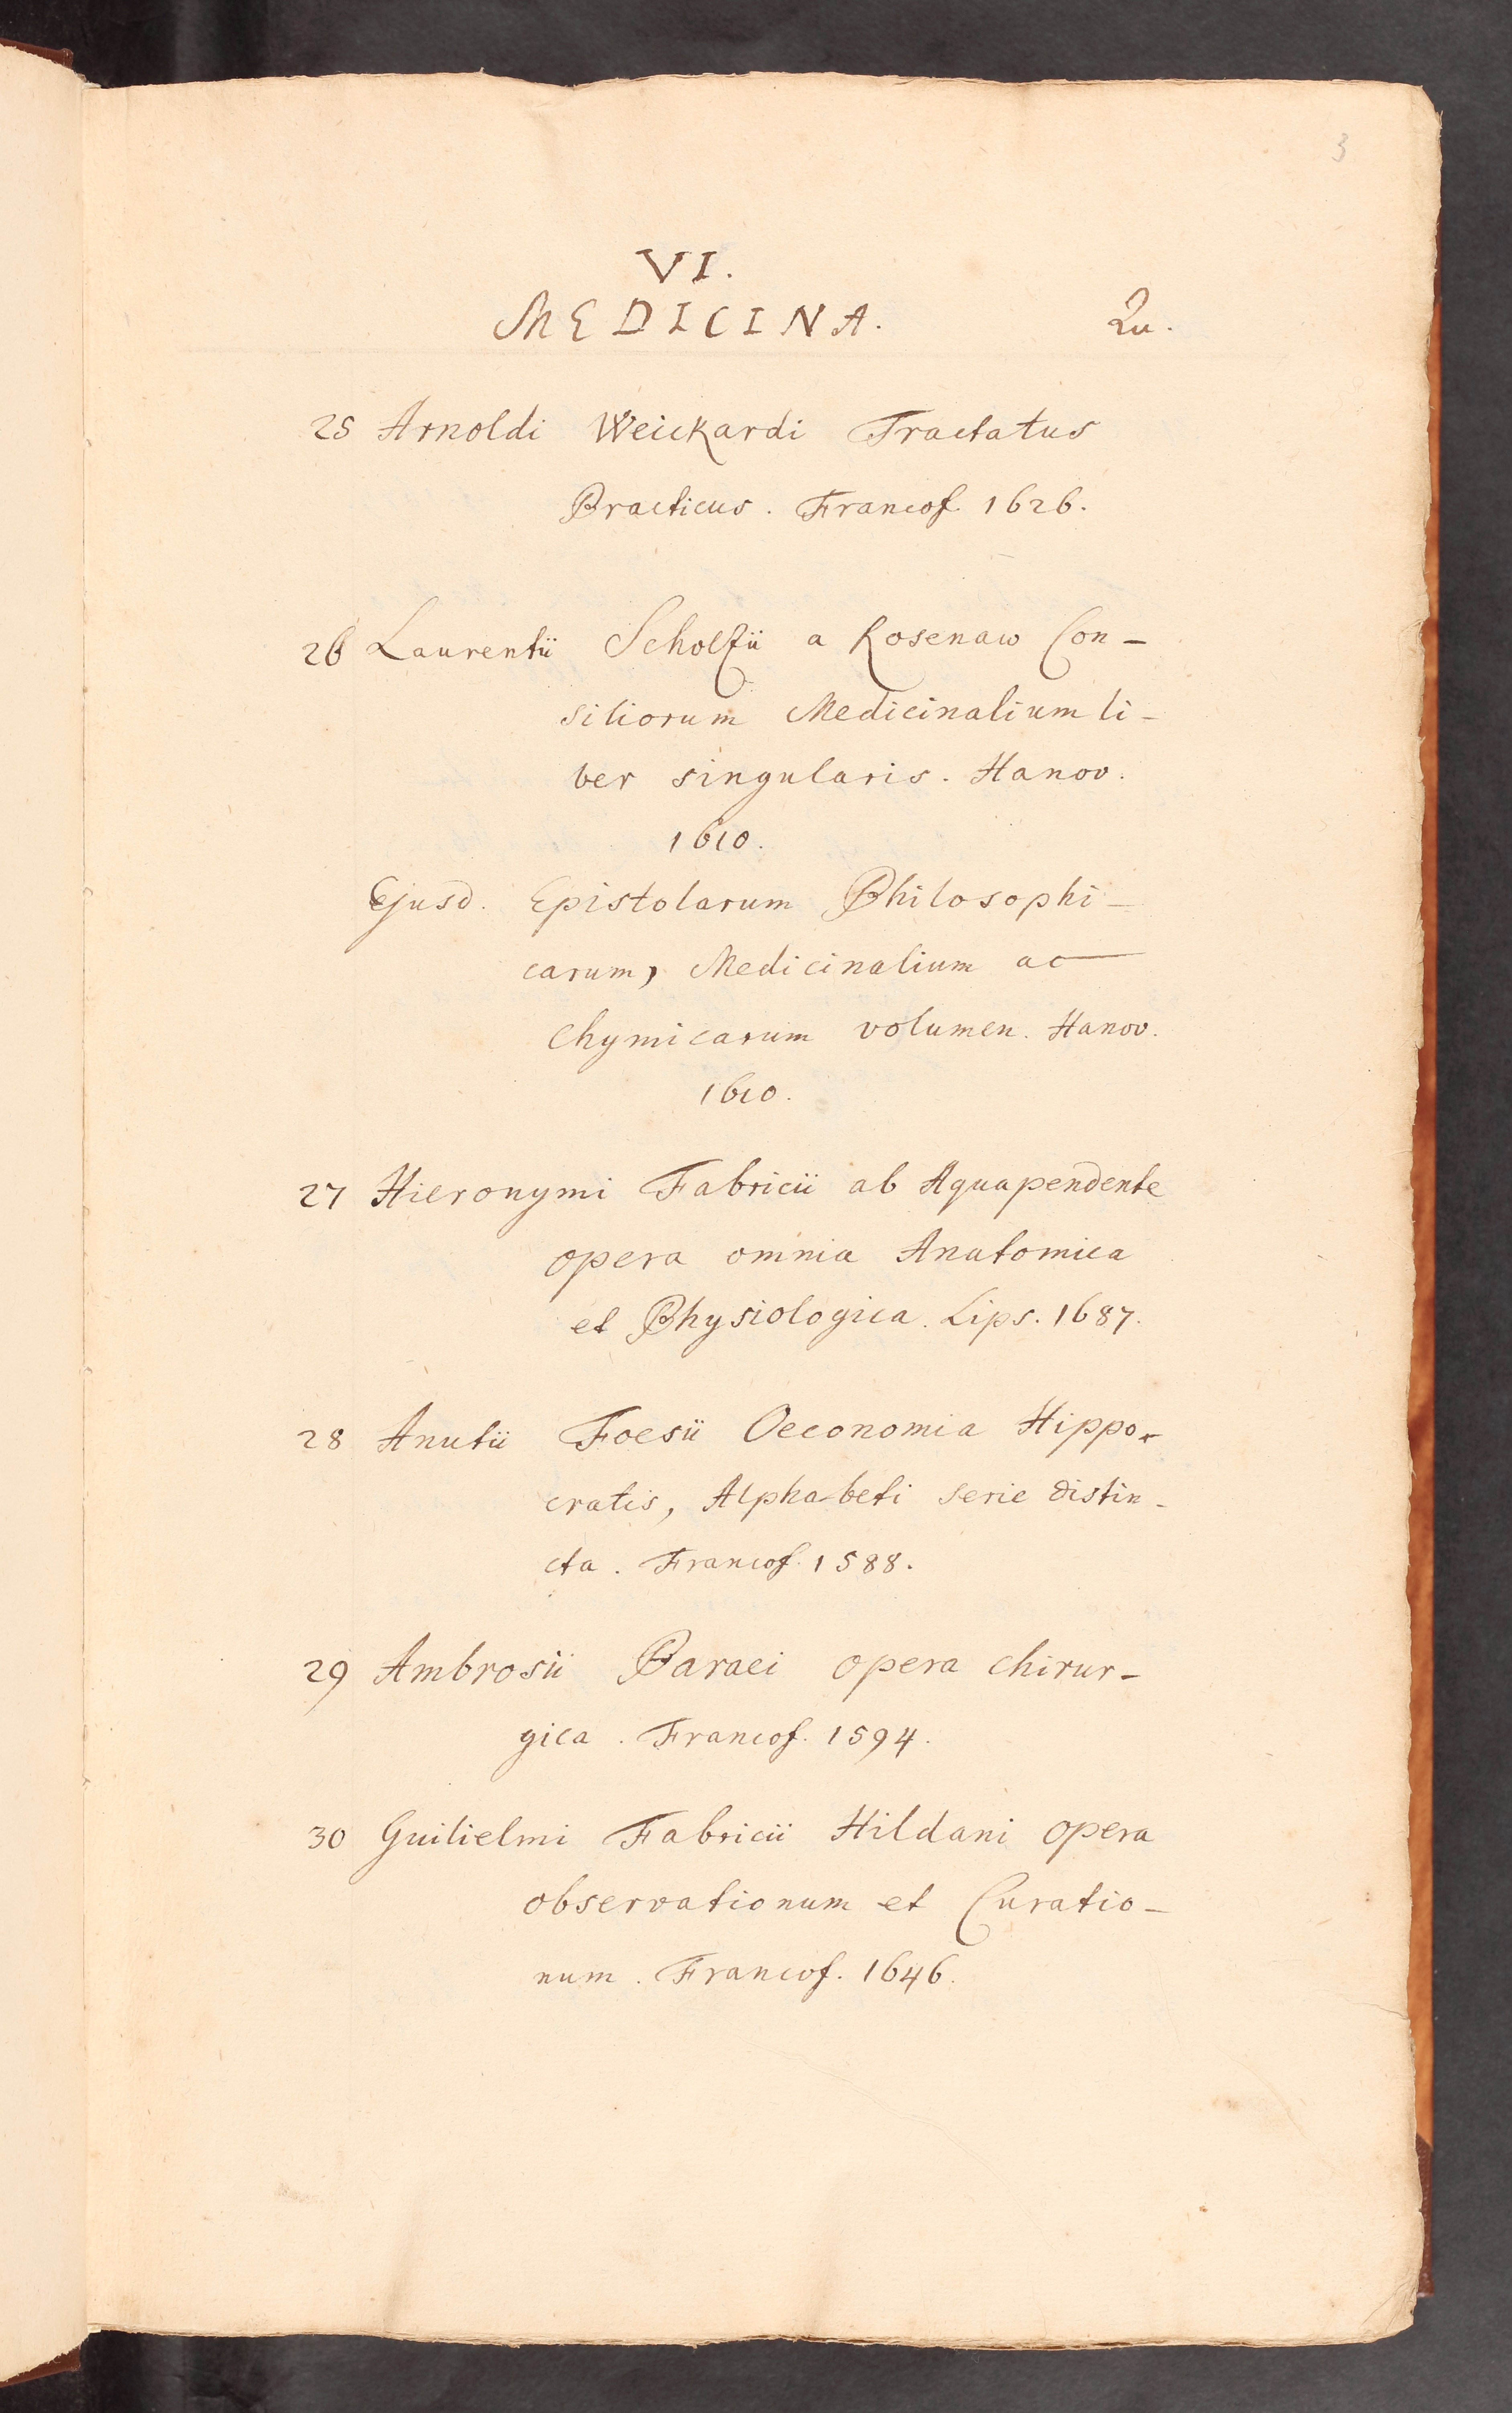 3
VI.
MEDICINA. Qu.
25 Arnoldi Weickardi Tractatus
Practicus. Francof. 1626.
26 Laurentii Scholzii a Rosenaw Con-
siliorum Medicinalium li-
ber singularis. Hanov.
1610.
Ejusd. Epistolarum Philosophi-
carum, Medicinalium ac
Chymicarum volumen. Hanov.
1610.
27 Hieronymi Fabricii ab Aquapendente
opera omnia Anatomica
et Physiologica. Lips. 1687.
28 Anutii Foesii Oeconomia Hippo-
cratis, Alphabeti serie distin-
cta. Francof. 1588.
29 Ambrosii Paraei opera chirur-
gica. Francof. 1594.
30 Guilielmi Fabricii Hildani opera
observationum et Curatio-
num. Francof. 1646.